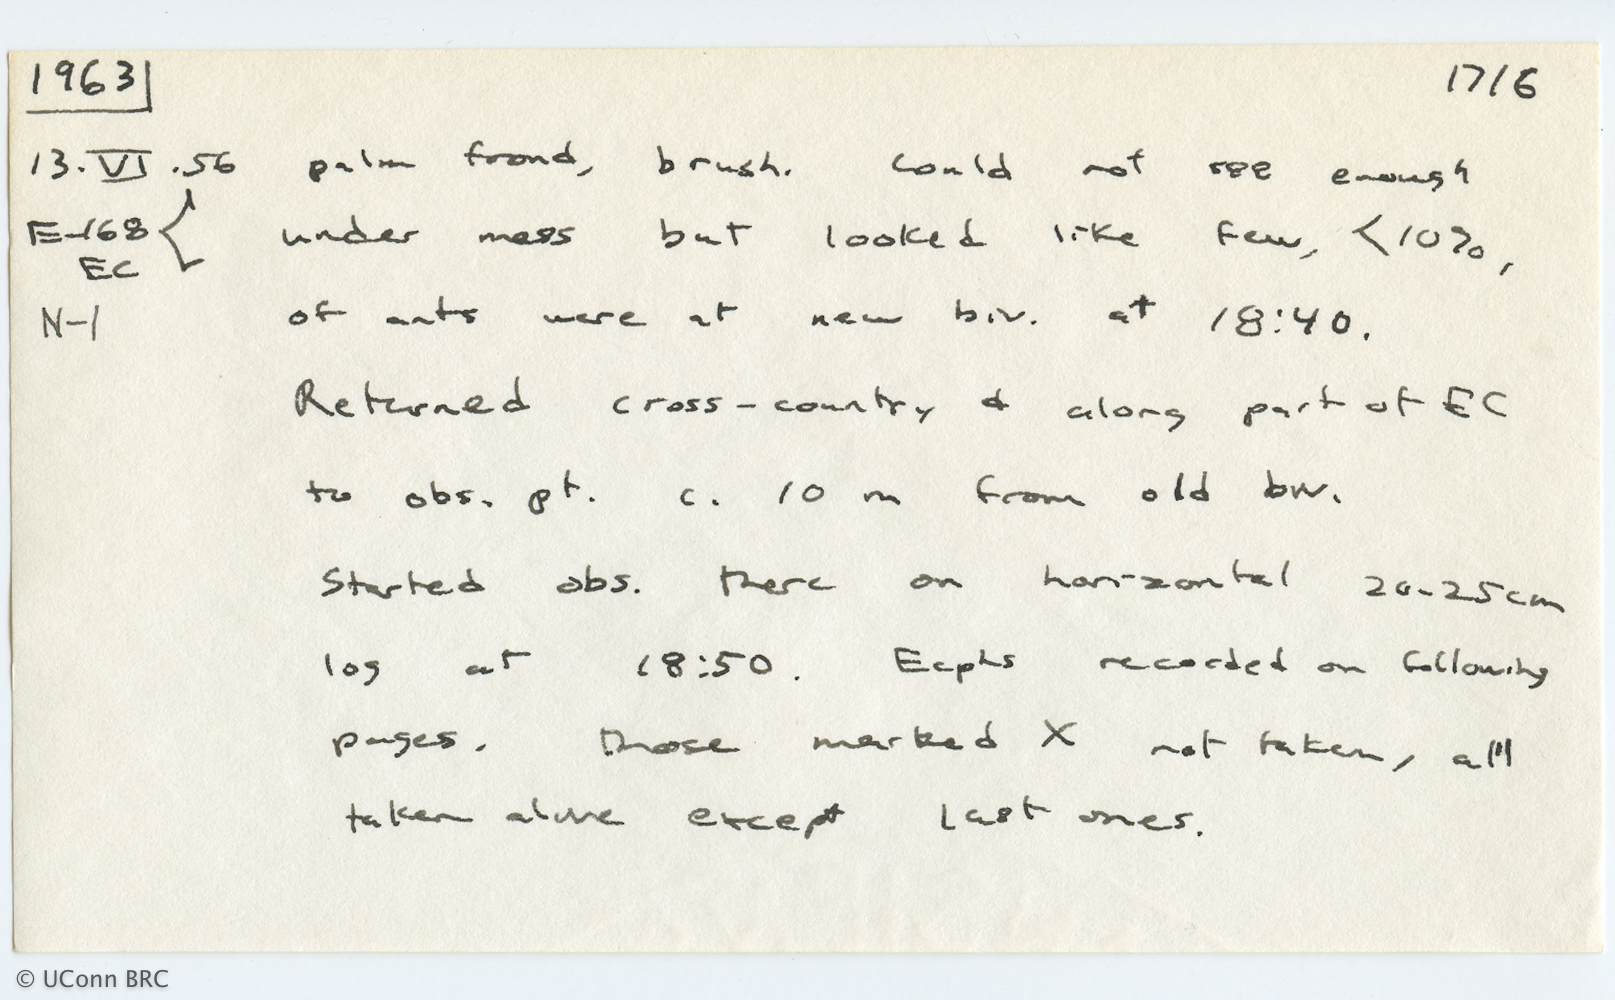 1963 1716
13.VI.56 palm frond, brush. Could not see enough
E-168 under mess but looked like few, <10%,
EC
N-1 of ants were at new biv. at 18:40.
Returned cross-country & along part of EC
to obs. pt. c. 10 m from old biv.
Started obs. there on horizontal 20-25cm
log at 18:50. Ecphs recorded on following
pages. Those marked X not taken, all
taken alive except last ones.
© UConn BRC